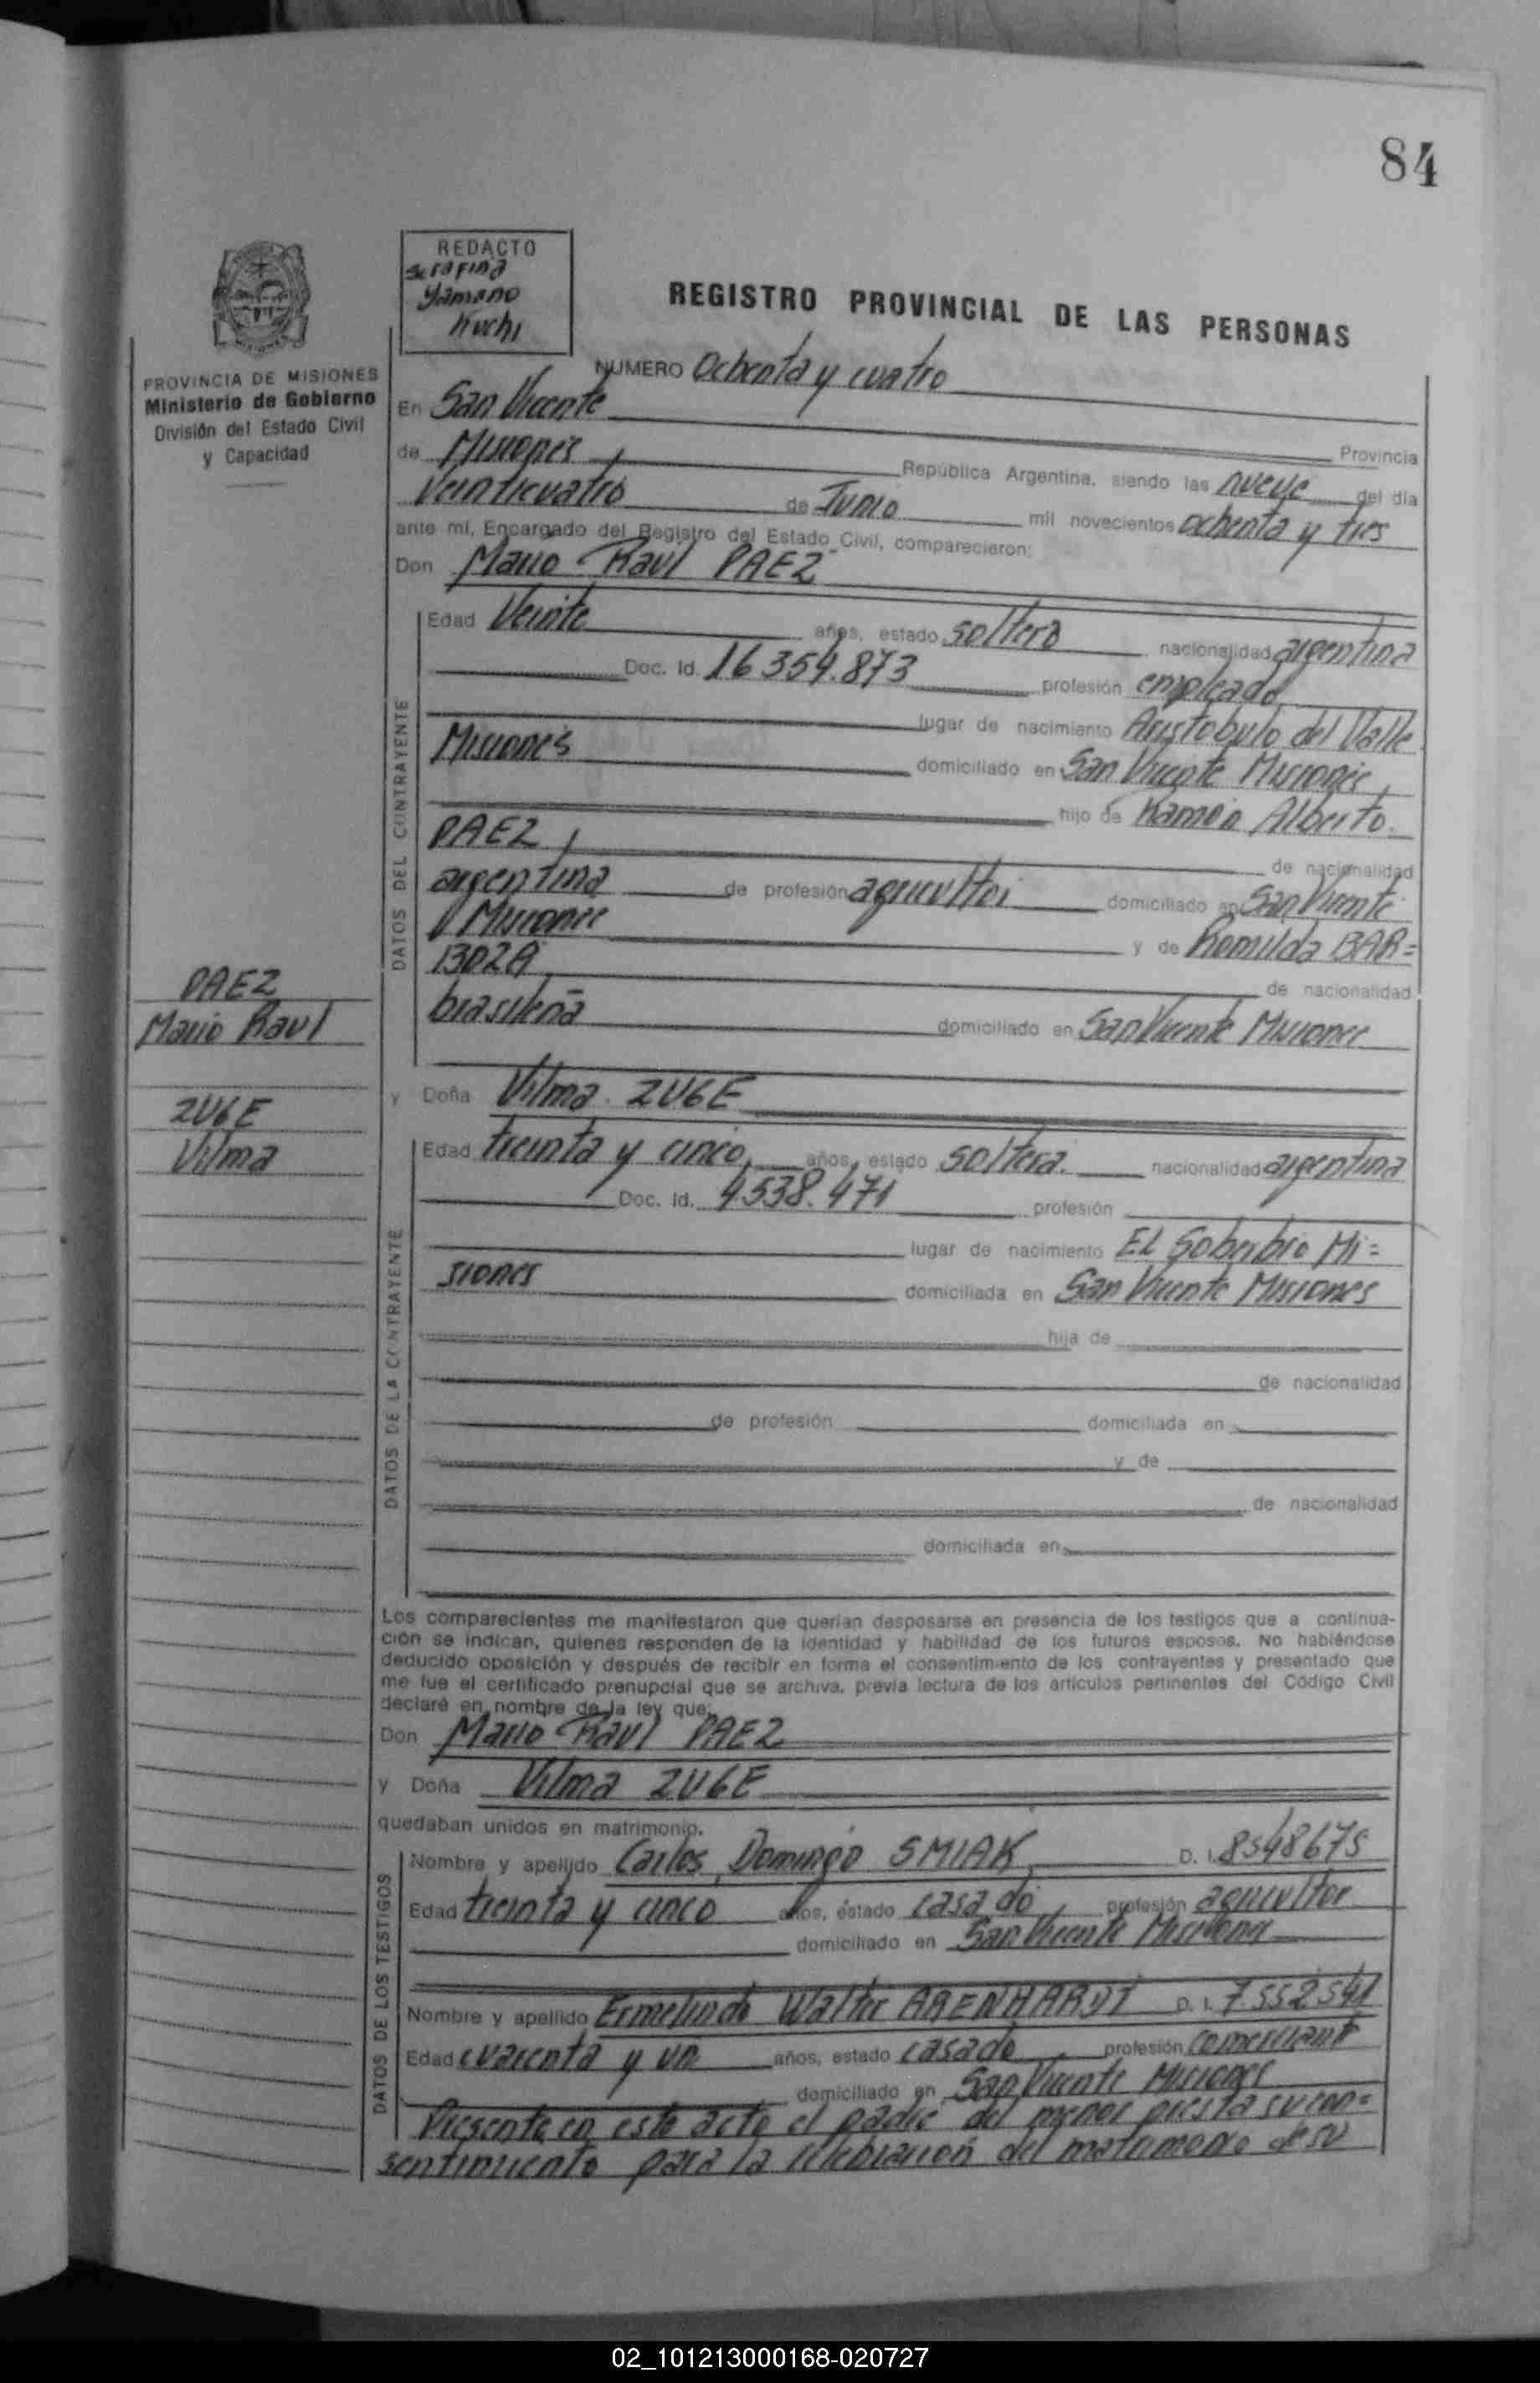 84
REDACTO
Serafina
Yamano
Kuchi
REGISTRO PROVINCIAL DE LAS PERSONAS
PROVINCIA DE MISIONES
Ministerio de Gobierno
División del Estado Civil
y Capacidad
NUMERO Ochenta y cuatro
En San Vicente Provincia
de Misiones, República Argentina, siendo las nueve del día
Veinticuatro de Junio mil novecientos ochenta y tres
ante mí, Encargado del Registro del Estado Civil, comparecieron:
Don Mario Raul PAEZ
DATOS DEL CONTRAYENTE
Edad Veinte años, estado soltero nacionalidad argentina
Doc. Id. 16.354.873 profesión empleado
lugar de nacimiento Aristobulo del Valle
Misiones domiciliado en San Vicente Misiones,
hijo de Ramón Alberto
PAEZ, de nacionalidad
argentina de profesión agricultor domiciliado en San Vicente
Misiones y de Romilda BAR=
BOZA de nacionalidad
brasileña domiciliado en San Vicente Misiones
PAEZ
Mario Raul
ZUGE
Vilma
y Doña Vilma ZUGE
DATOS DE LA CONTRAYENTE
Edad treinta y cinco, años, estado soltera nacionalidad argentina
Doc. Id. 4.538.471 profesión
lugar de nacimiento El Soberbio Mi=
siones domiciliada en San Vicente Misiones
hija de
de nacionalidad
de profesión domiciliada en
y de
de nacionalidad
domiciliada en
Los comparecientes me manifestaron que querían desposarse en presencia de los testigos que a continua-
ción se indican, quienes responden de la identidad y habilidad de los futuros esposos. No habiéndose
deducido oposición y después de recibir en forma el consentimiento de los contrayentes y presentado que
me fue el certificado prenupcial que se archiva, previa lectura de los artículos pertinentes del Código Civil
declaré en nombre de la ley que:
Don Mario Raul PAEZ
y Doña Vilma ZUGE
quedaban unidos en matrimonio.
DATOS DE LOS TESTIGOS
Nombre y apellido Carlos Domingo SMIAK D. I. 8548675
Edad treinta y cinco años, estado casado profesión agricultor
domiciliado en San Vicente Misiones
Nombre y apellido Ermelindo Walter ARENHARDT D. I. 7552541
Edad cuarenta y un años, estado casado profesión comerciante
domiciliado en San Vicente Misiones
Presente en este acto el padre del menor presta su con=
sentimiento para la celebración del matrimonio de su
02_101213000168-020727